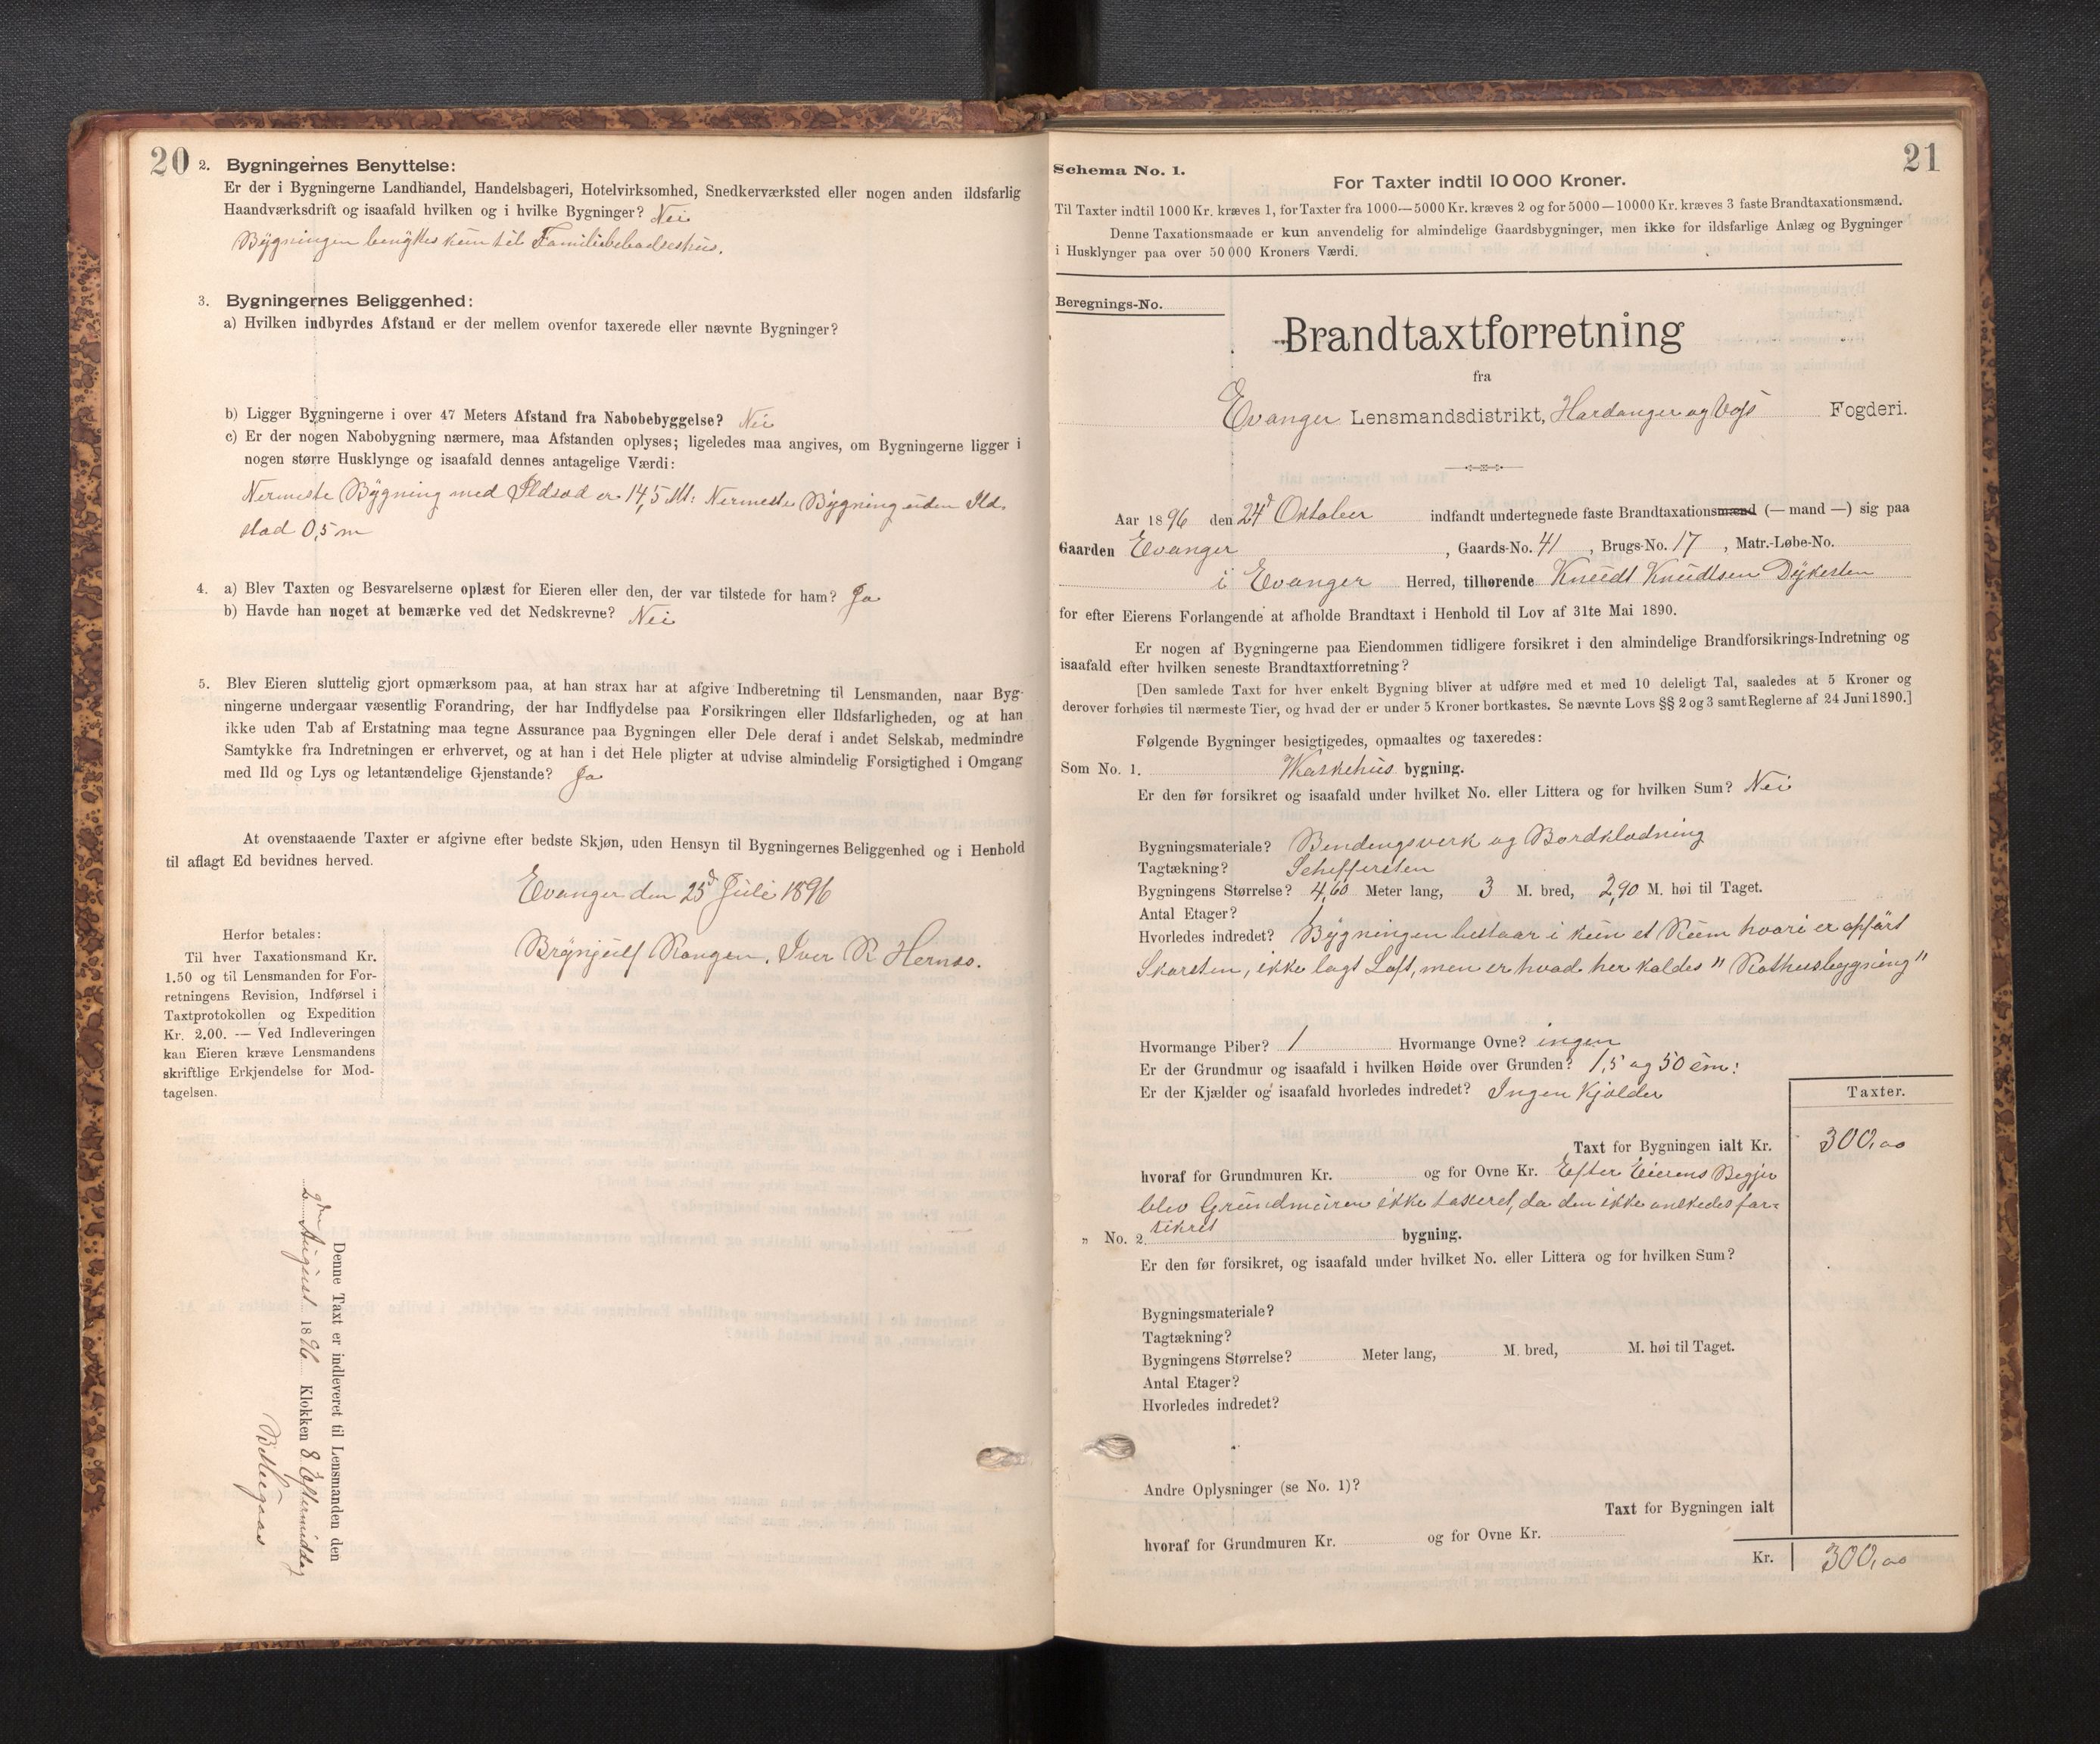 20
2. Bygningernes Benyttelse:
Er der i Bygningerne Landhandel, Handelsbageri, Hotelvirksomhed, Snedkerværksted eller nogen anden ildsfarlig
Haandværksdrift og isaafald hvilken og i hvilke Bygninger? Nei
Bygningen benyttes kun til Familiebebodseshus.
3. Bygningernes Beliggenhed:
a) Hvilken indbyrdes Afstand er der mellem ovenfor taxerede eller nævnte Bygninger?
b) Ligger Bygningerne i over 47 Meters Afstand fra Nabobebyggelse? Nei
c) Er der nogen Nabobygning nærmere, maa Afstanden oplyses; ligeledes maa angives, om Bygningerne ligger i
nogen større Husklynge og isaafald dennes antagelige Værdi:
Nermeste Bygning med Ildsod er 14,5 M: Nermeste Bygning uden Ild-
stad 0,5 m
4. a) Blev Taxten og Besvarelserne oplæst for Eieren eller den, der var tilstede for ham? Ja
b) Havde han noget at bemærke ved det Nedskrevne? Nei
5. Blev Eieren sluttelig gjort opmærksom paa, at han strax har at afgive Indberetning til Lensmanden, naar Byg-
ningerne undergaar væsentlig Forandring, der har Indflydelse paa Forsikringen eller Ildsfarligheden, og at han
ikke uden Tab af Erstatning maa tegne Assurance paa Bygningen eller Dele deraf i andet Selskab, medmindre
Samtykke fra Indretningen er erhvervet, og at han i det Hele pligter at udvise almindelig Forsigtighed i Omgang
med Ild og Lys og letantændelige Gjenstande? Ja
At ovenstaaende Taxter er afgivne efter bedste Skjøn, uden Hensyn til Bygningernes Beliggenhed og i Henhold
til aflagt Ed bevidnes herved.
Evanger den 25d Juli 1896
Brynjulf Rongen. Iver R Hernæs.
Herfor betales:
Til hver Taxationsmand Kr.
1.50 og til Lensmanden for For-
retningens Revision, Indførsel i
Taxtprotokollen og Expedition
Kr. 2.00. — Ved Indleveringen
kan Eieren kræve Lensmandens
skriftlige Erkjendelse for Mod-
tagelsen.
Denne Taxt er indleveret til Lensmanden den
2den August 1896 Klokken 8 Eftermiddag
21
Schema No. 1.
For Taxter indtil 10 000 Kroner.
Til Taxter indtil 1000 Kr. kræves 1, for Taxter fra 1000—5000 Kr. kræves 2 og for 5000—10000 Kr. kræves 3 faste Brandtaxationsmænd.
Denne Taxationsmaade er kun anvendelig for almindelige Gaardsbygninger, men ikke for ildsfarlige Anlæg og Bygninger
i Husklynger paa over 50 000 Kroners Værdi.
Beregnings-No.
Brandtaxtforretning
fra
Evanger Lensmandsdistrikt, Hardanger og Voss Fogderi.
Aar 1896 den 24d Oktober indfandt undertegnede faste Brandtaxationsmænd (— mand —) sig paa
Gaarden Evanger, Gaards-No. 41, Brugs-No. 17, Matr.-Løbe-No.
i Evanger Herred, tilhørende Knudt Knudtsen Dykesten
for efter Eierens Forlangende at afholde Brandtaxt i Henhold til Lov af 31te Mai 1890.
Er nogen af Bygningerne paa Eiendommen tidligere forsikret i den almindelige Brandforsikrings-Indretning og
isaafald efter hvilken seneste Brandtaxtforretning?
[Den samlede Taxt for hver enkelt Bygning bliver at udføre med et med 10 deleligt Tal, saaledes at 5 Kroner og
derover forhøies til nærmeste Tier, og hvad der er under 5 Kroner bortkastes. Se nævnte Lovs §§ 2 og 3 samt Reglerne af 24 Juni 1890.]
Følgende Bygninger besigtigedes, opmaaltes og taxeredes:
Som No. 1. Waskehus bygning.
Er den før forsikret og isaafald under hvilket No. eller Littera og for hvilken Sum? Nei
Bygningsmateriale? Bindingsverk og Bordklædning
Tagtækning? Scheffersten
Bygningens Størrelse? 4,60 Meter lang, 3 M. bred, 2,90 M. høi til Taget.
Antal Etager? 1
Hvorledes indredet? Bygningen bestaar i kun et Rum hvori er opført
Skorsten, ikke lagt Loft, men er hvad her kaldes "Rothusbygning"
Hvormange Piber? 1 Hvormange Ovne? ingen
Er der Grundmur og isaafald i hvilken Høide over Grunden? 1,5 og 50 cm:
Er der Kjælder og isaafald hvorledes indredet? Ingen Kjælder
Taxter.
Taxt for Bygningen ialt Kr. 300,00
hvoraf for Grundmuren Kr. og for Ovne Kr. Efter Eierens Begjer
blev Grundmuren ikke taxeret, da den ikke ønskedes for-
sikret
„ No. 2. bygning.
Er den før forsikret, og isaafald under hvilket No. eller Littera og for hvilken Sum?
Bygningsmateriale?
Tagtækning?
Bygningens Størrelse? Meter lang, M. bred, M. høi til Taget.
Antal Etager?
Hvorledes indredet?
Andre Oplysninger (se No. 1)?
Taxt for Bygningen ialt
hvoraf for Grundmuren Kr. og for Ovne Kr.
Kr. 300,00